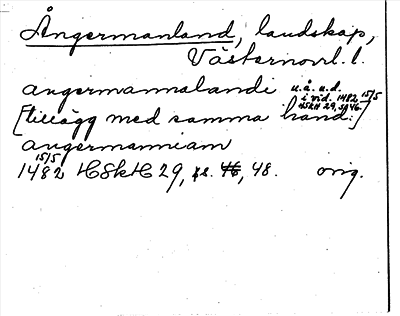 Ångermanland, landskap,
Västernorrl. l.
angermannalandi u.å. u.d.
i vid. 1482 15/5
HSkH 29, s. 46.
[tillägg med samma hand:]
angermanniam
15/5
1482 HSkH 29, s. 46, 48. orig.